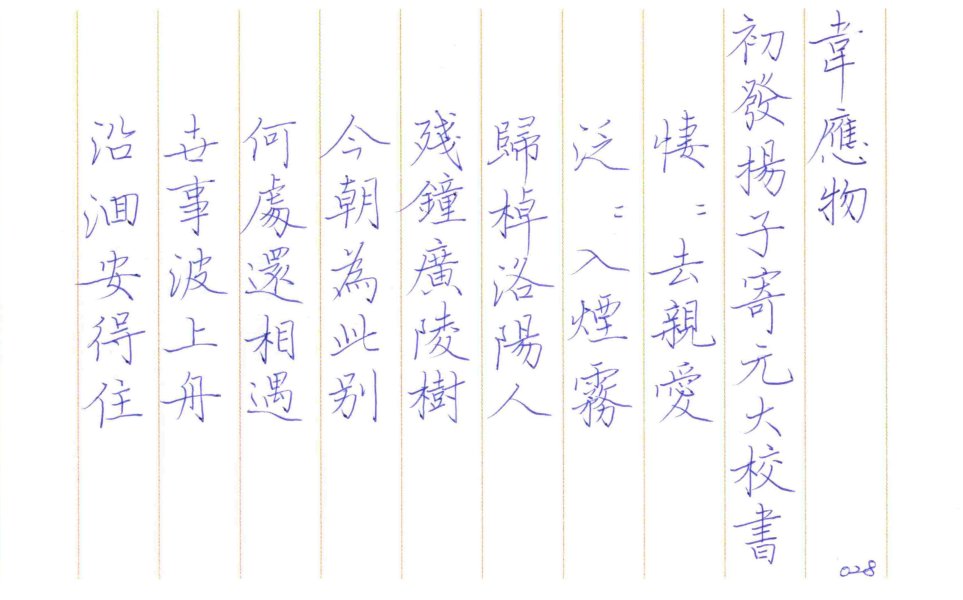 韋應物
初發揚子寄元大校書
悽〻去親愛
泛〻入煙霧
歸棹洛陽人
殘鐘廣陵樹
今朝為此別
何處還相遇
世事波上舟
沿洄安得住
028